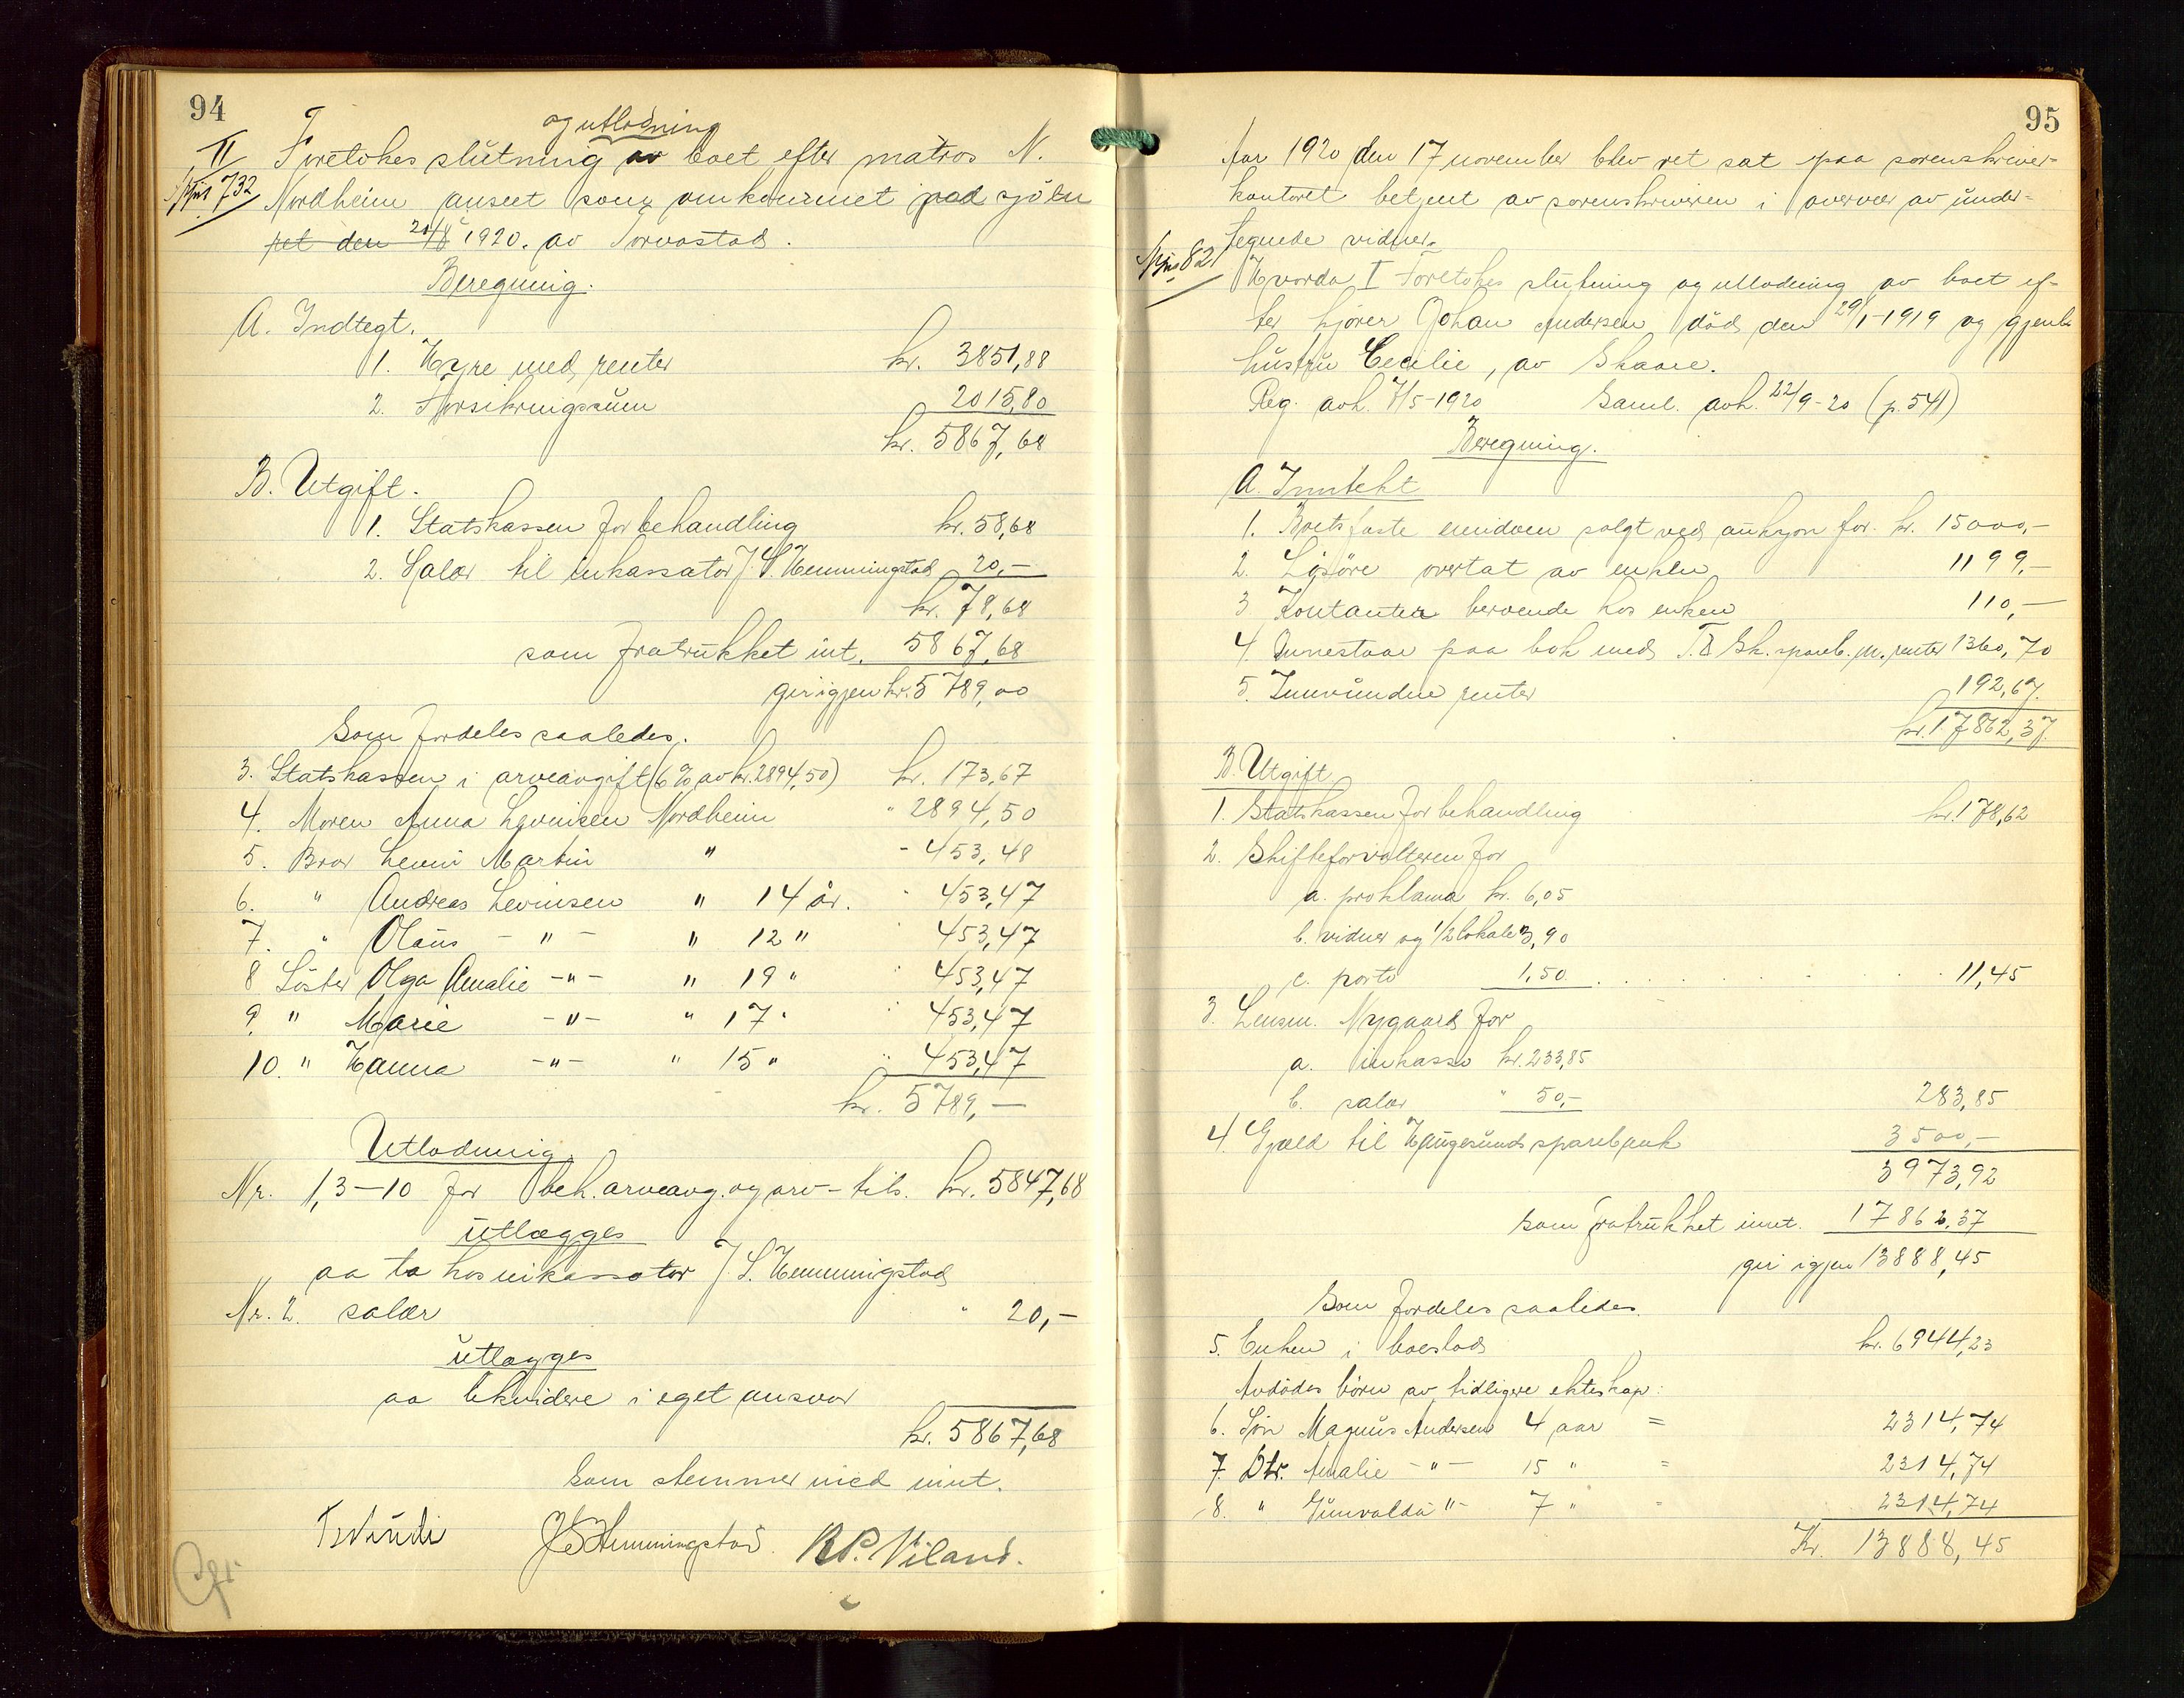 94
og utlodning
II Foretokes slutning av boet efter matros N.
732 Nordheim anseet som omkommet paa sjöen
ret den 20/8 1920. av Torvastad.
Beregning.
A. Indtegt.
1. Hyre med renter kr. 3851,88
2. Forsikringssum 2015,80
kr. 5867,68
B. Utgift.
1. Statskassen for behandling kr. 58,68
2. Salær til inkassator J. S. Hemmingstad 20,-
kr. 78,68
som fratrukket int. 5867,68
gir igjen kr. 5789,00
Som fordeles saaledes.
3. Statskassen i arveavgift (6 % av kr. 2894,50) kr. 173,67
4. Moren Anna Levinsen Nordheim " 2894,50
5. Bror Levin Martin " - 453,48
6. " Andreas Levinsen " 14 år. " 453,47
7. " Olaus - " - " 12 " 453,47
8 Söster Olga Amalie - " - " 19 " " 453,47
9. " Marie - " - " 17 " " 453,47
10. " Hanna - " - " 15 " " 453,47
kr. 5789,-
Utlodning
Nr. 1,3-10 for beh. arveavg. og arv - tils. kr. 5847,68
utlægges
aa ta hos inkassator J. S. Hemmingstad
Nr. 2. salær " 20,-
utlægges
aa likvidere i eget ansvar
kr. 5867,68
Som stemmer med innt.
JSHemmingstad. R.P. Viland.
95
Aar 1920 den 17 november blev ret sat paa sorenskriver-
kontoret betjent av sorenskriveren i overvær av under-
tegnede vidner.
821 Hvorda I Foretokes slutning og utlodning av boet ef-
ter kjörer Johan Andersen död den 29/1-1919 og gjenl.
hustru Cecilie, av Skaare.
Reg. avh. 7/5-1920 Saml. avh. 22/9-20 (p. 541)
Beregning.
A. Inntekt
1. Boets faste eiendom solgt ved auksjon for kr. 15000,-
2. Lösöre overtat av enken 1199,-
3 Kontanter beroende hos enken 110,-
4. Innestaar paa bok med T. & Sk. spareb. m. renter 1360,70
5. Innvundne renter 192,67.
kr. 17862,37.
B. Utgift
1. Statskassen for behandling kr. 178,62
2. Skifteforvalteren for
a. proklama kr. 6,05
b. vidner og 1/2 lokale 3,90
c. porto 1,50 . . . . . . 11,45
3. Lensm. Nygaard for
a. inkasso kr. 233,85
b. salær " 50,- 283,85
4. Gjæld til Haugesunds sparebank 3500,-
3973,92
som fratrukket innt. 17862,37
gir igjen 13888,45
Som fordeles saaledes.
5. Enken i boeslod kr. 6944,23
Avdödes börn av tidligere ekteskap:
6. Sön Magnus Andersen 4 aar = 2314,74
7. Dtr. Amalie - " - 15 " = 2314,74
8. " Gunvalda " - 7 " = 2314,74
Kr. 13888,45